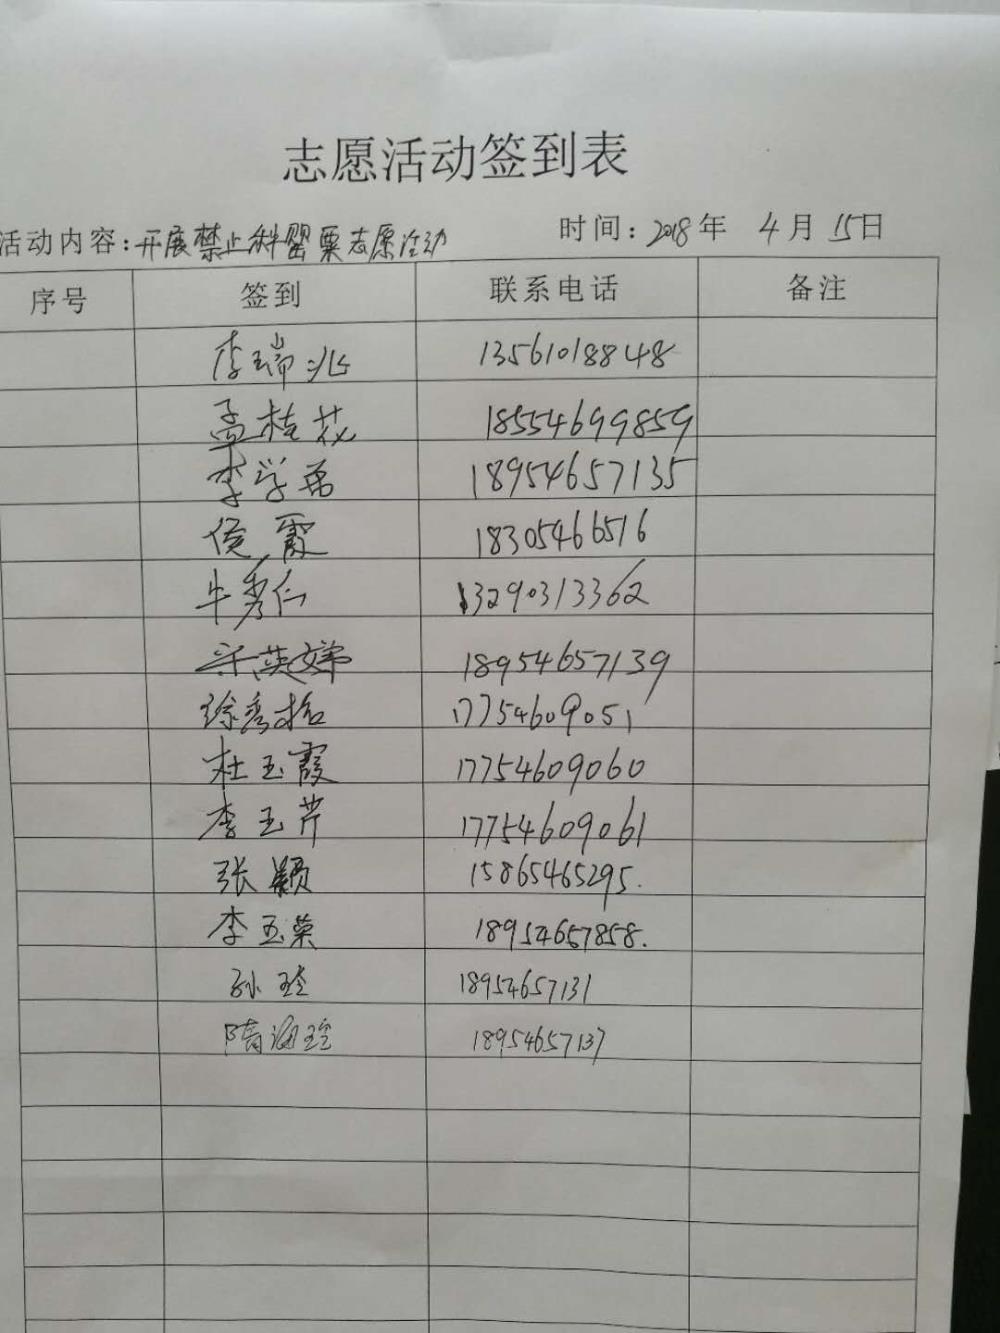 志愿活动签到表
活动内容：开展禁止种罂粟志愿活动 时间：2018年 4月 15日
序号 签到 联系电话 备注
李瑞兆 13561018848
孟桂花 18554699859
李学英 18954657135
侯霞 18305466516
牛秀仁 13290313362
英娣 18954657139
徐秀 17754609051
杜玉霞 17754609060
李玉芹 17754609061
张颖 15865465295.
李玉荣 18954657858.
孙玲 18954657131
隋海玲 18954657137